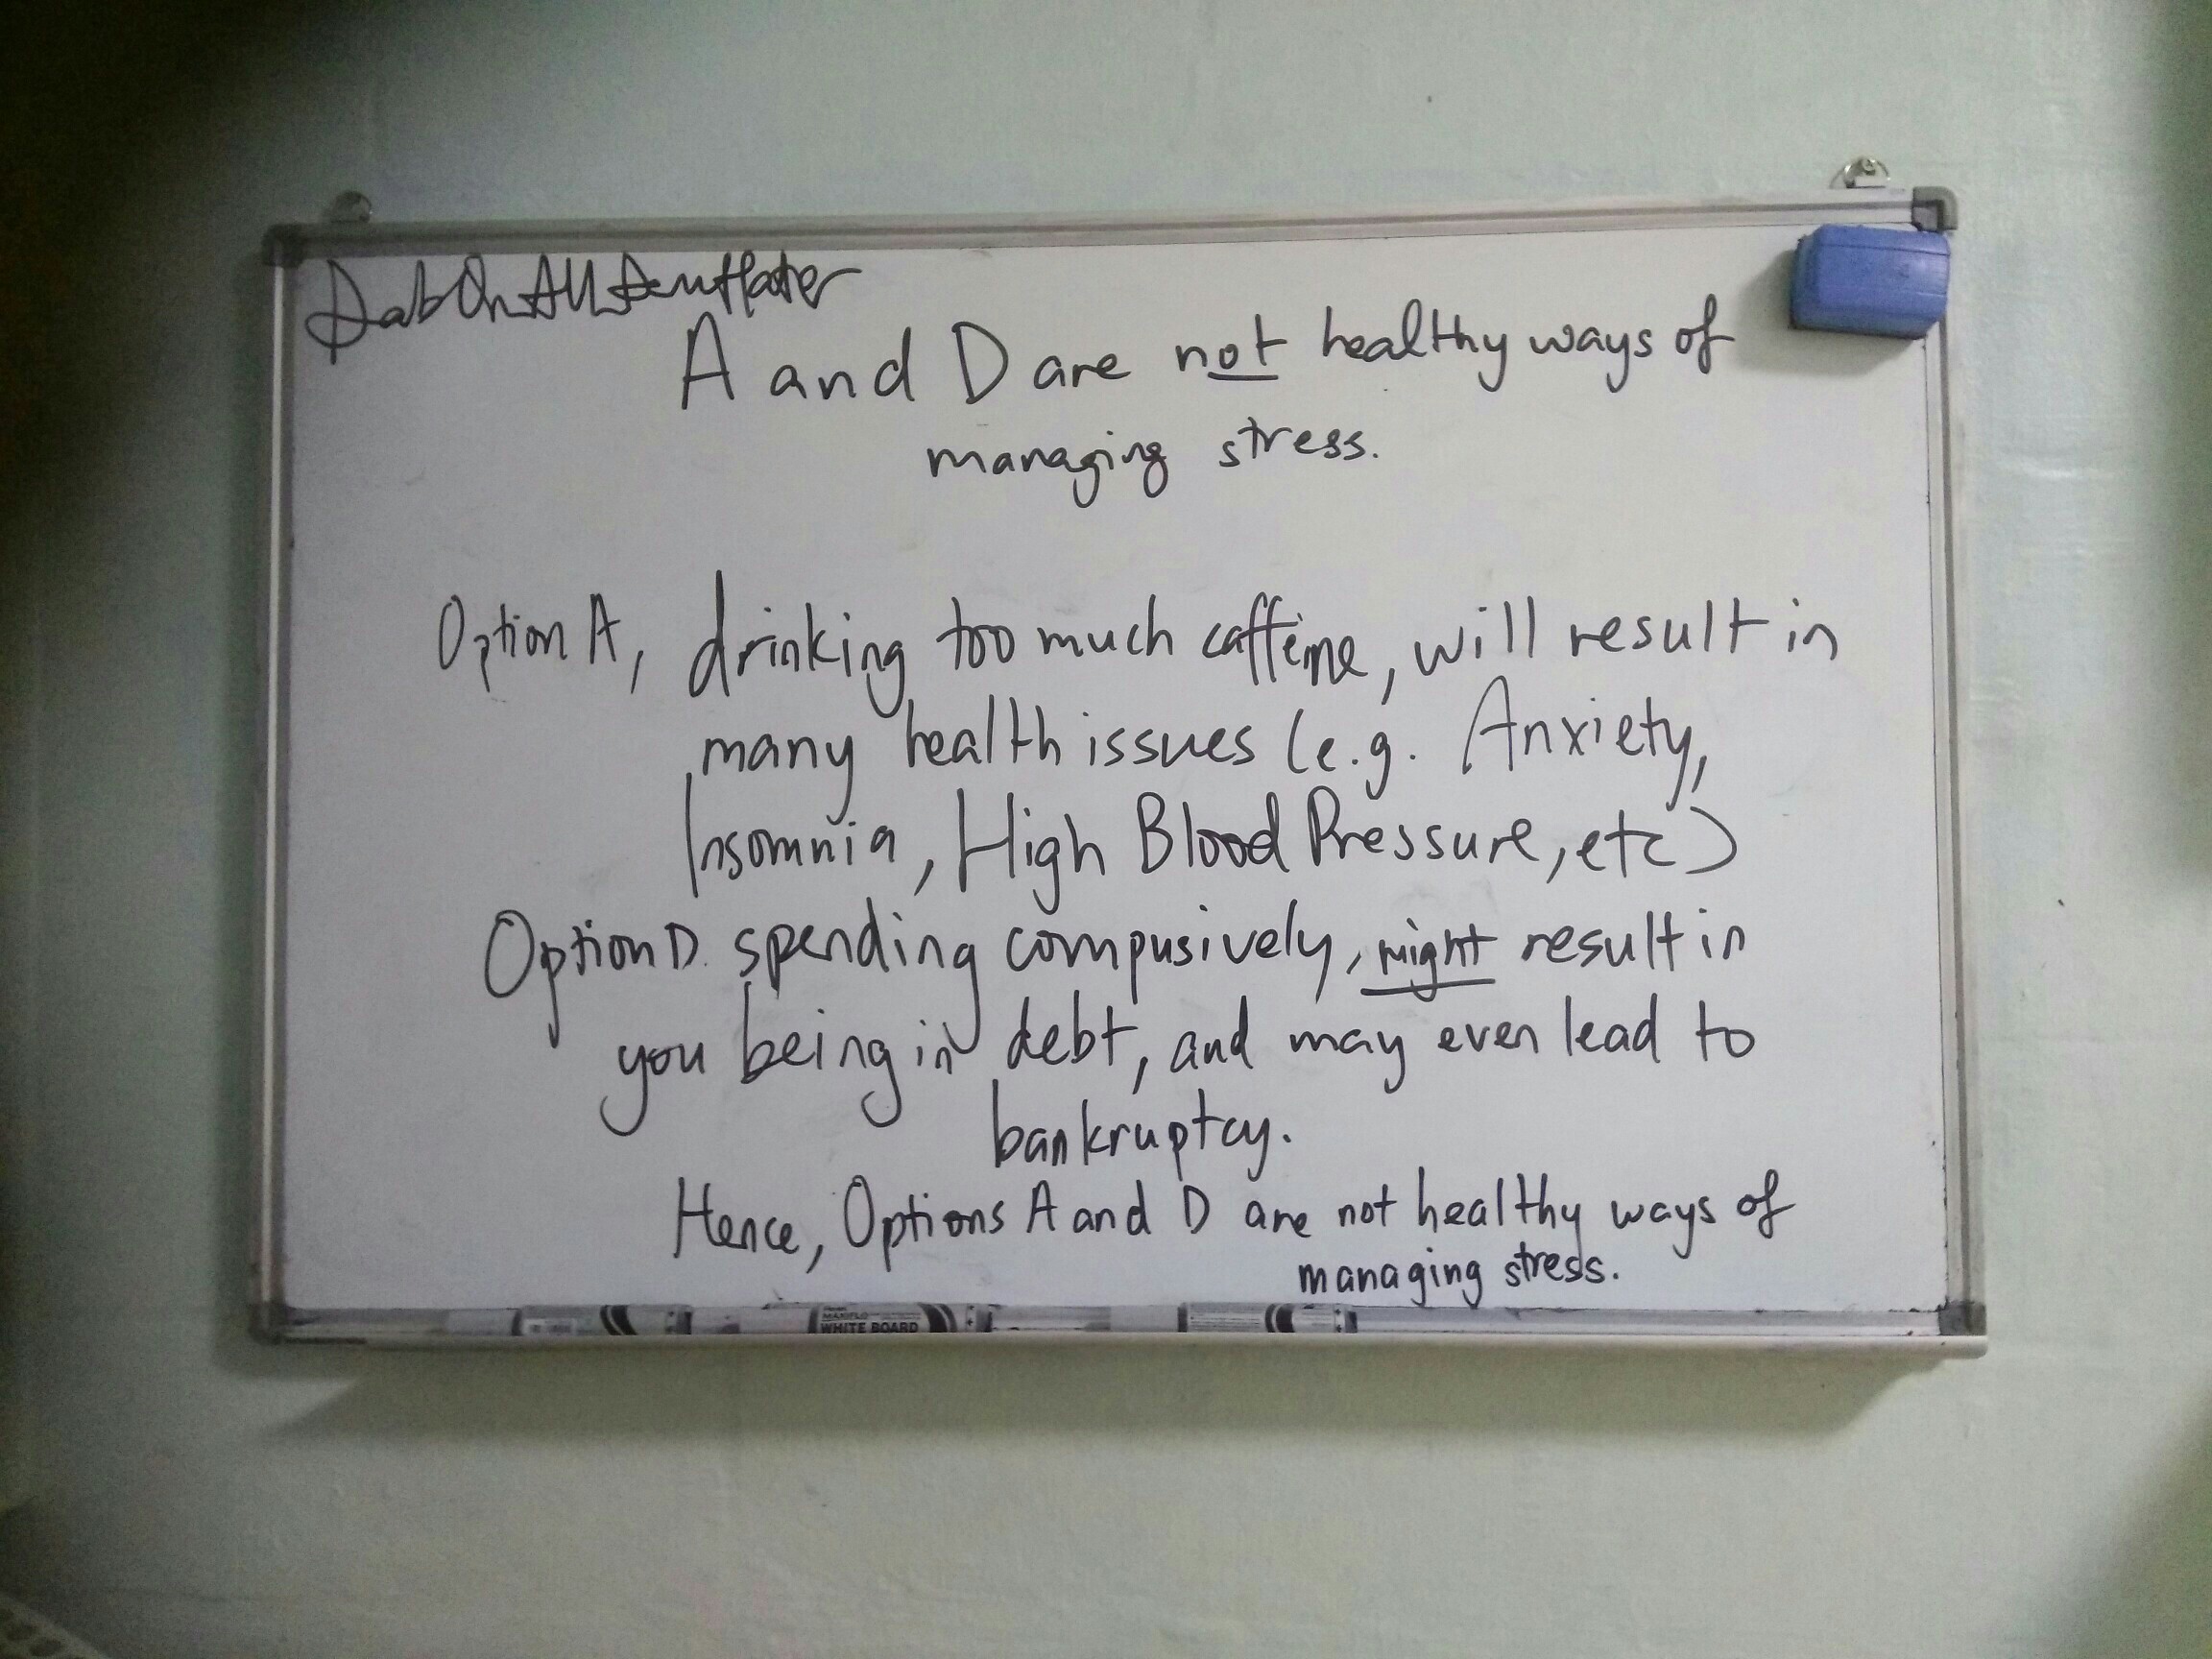 A and D are not healthy ways of
managing stress.
Option A, drinking too much caffeine, will result in
many health issues (e.g. Anxiety,
Insomnia, High Blood Pressure, etc)
Option D. spending compusively, might result in
you being in debt, and may even lead to
bankruptcy.
Hence, Options A and D are not healthy ways of
managing stress.
WHITE BOARD